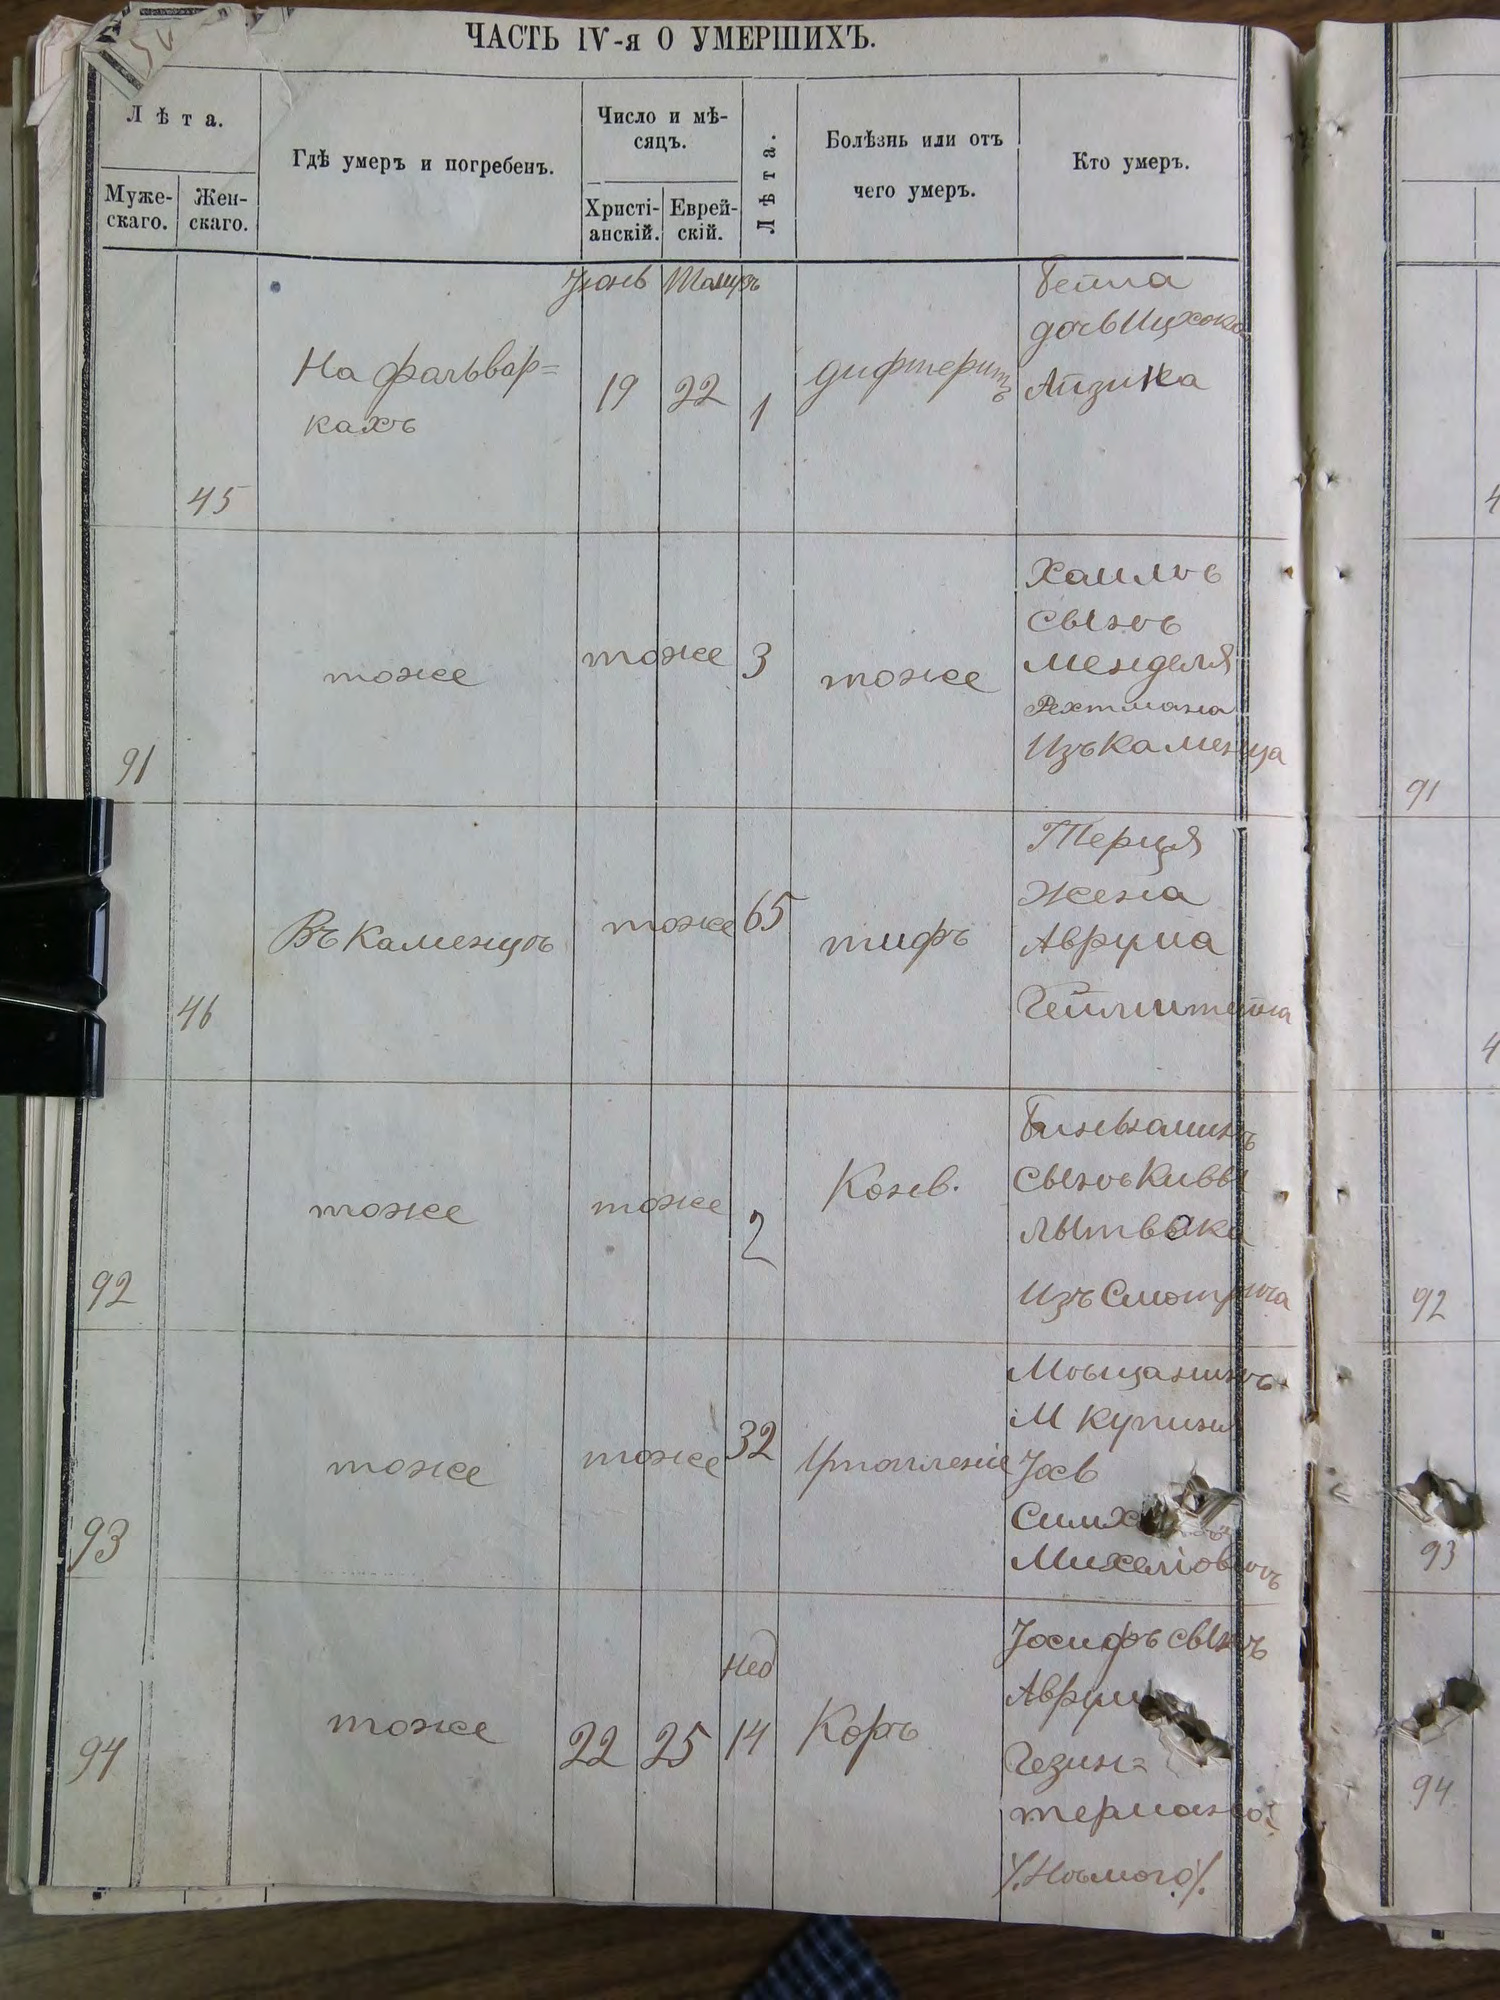 ЧАСТЬ IV-я О УМЕРШИХЪ.
Лѣта.
Муже-
скаго.
Жен-
скаго.
Гдѣ умеръ и погребенъ.
Число и мѣ-
сяцъ.
Христі-
анскій.
Еврей-
скій.
Лѣта.
Болѣзнь или отъ
чего умеръ.
Кто умеръ.
45
На фальвар=
кахъ
Іюнь
19
Тамузъ
22
1
дифтеритъ
Бейла
дочь Ицхока
Айзика
91
тоже
тоже
3
тоже
Хаимъ
сынъ
Менделя
Рехтмана
Изъ Каменца
46
Въ Каменцѣ
тоже
65
тифъ
Терця
жена
Аврума
92
тоже
тоже
2
Конв.
Биньяминъ
сынъ Киввы
Лытвака
изъ Смотрича
93
тоже
тоже
32
Утопленіе
Мѣщанинъ
М Купина
Іось
Симх
Михелiовичъ
94
тоже
22
25
нед
14
Корь
Іосифъ сынъ
Аврум
Гезин=
термана
/.Нѣмого/.
91
92
93
94